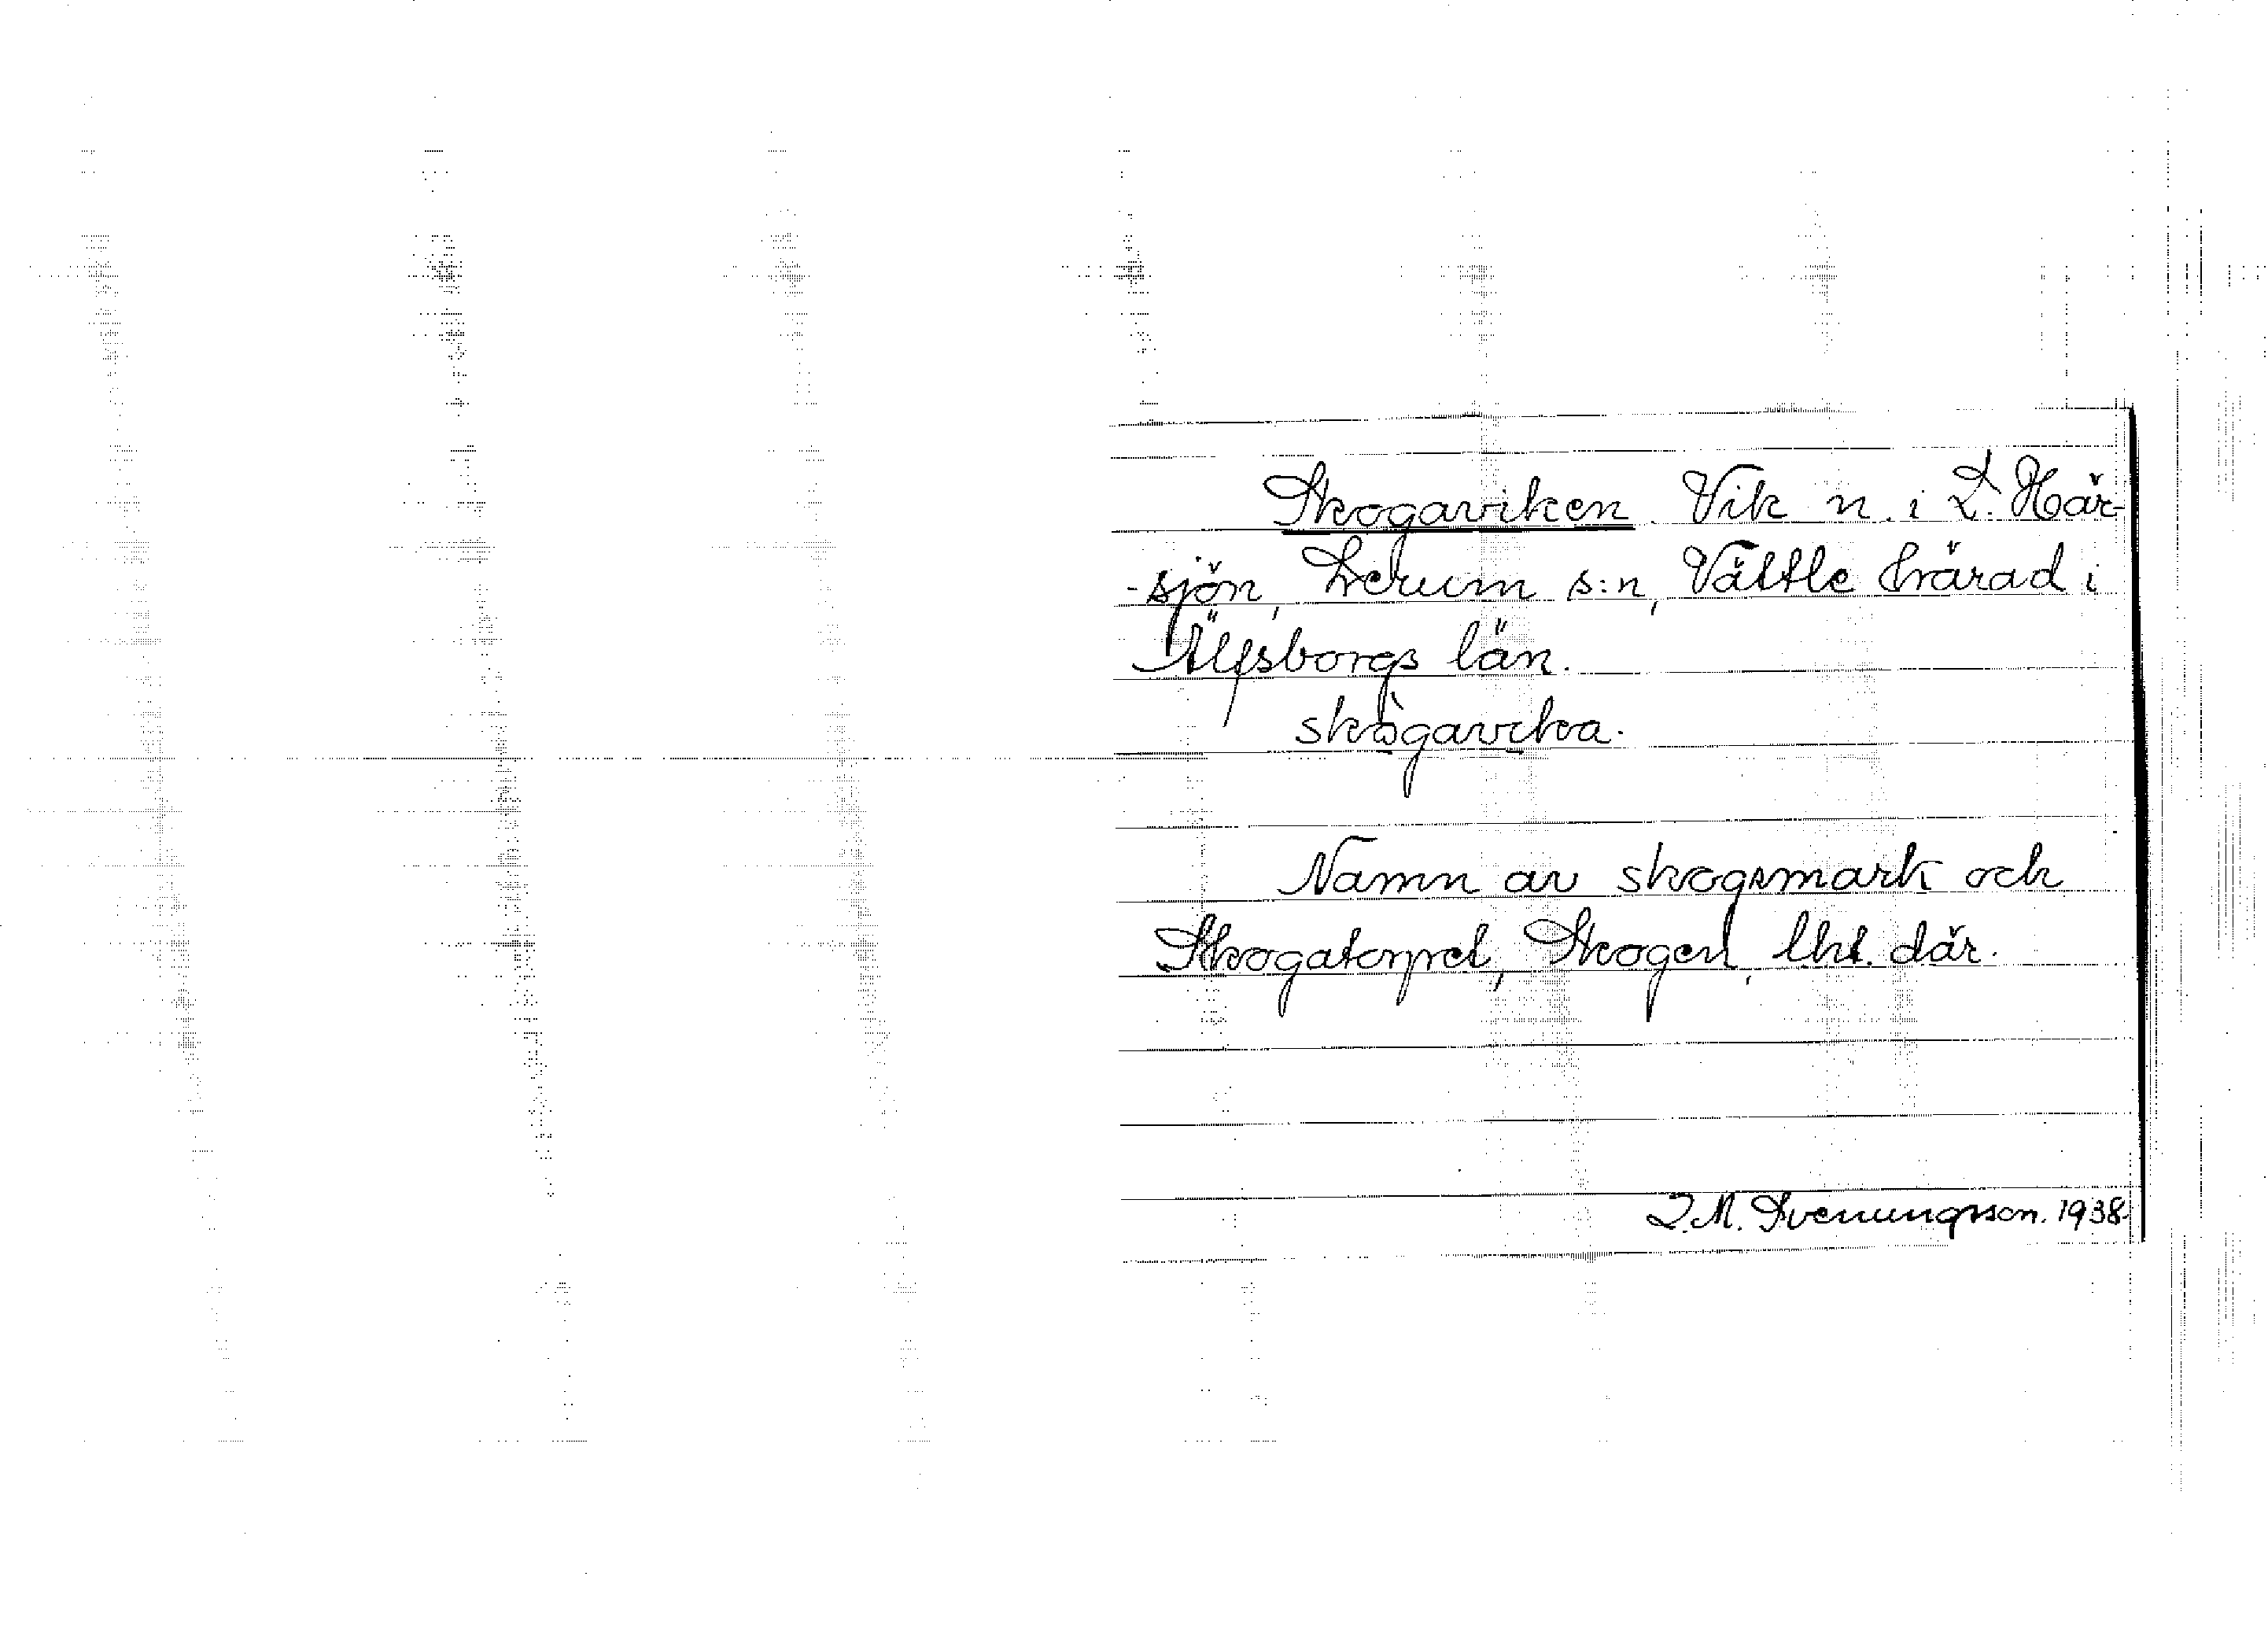 Skogaviken. Vik n. i L. Här-
-sjön, Lerum s:n, Vättle härad i
Älfsborgs län.
skògavika.
Namn av skogsmark och
Skogatorpet, Skogen, lht. där.
S.M. Svenungsson. 1938.